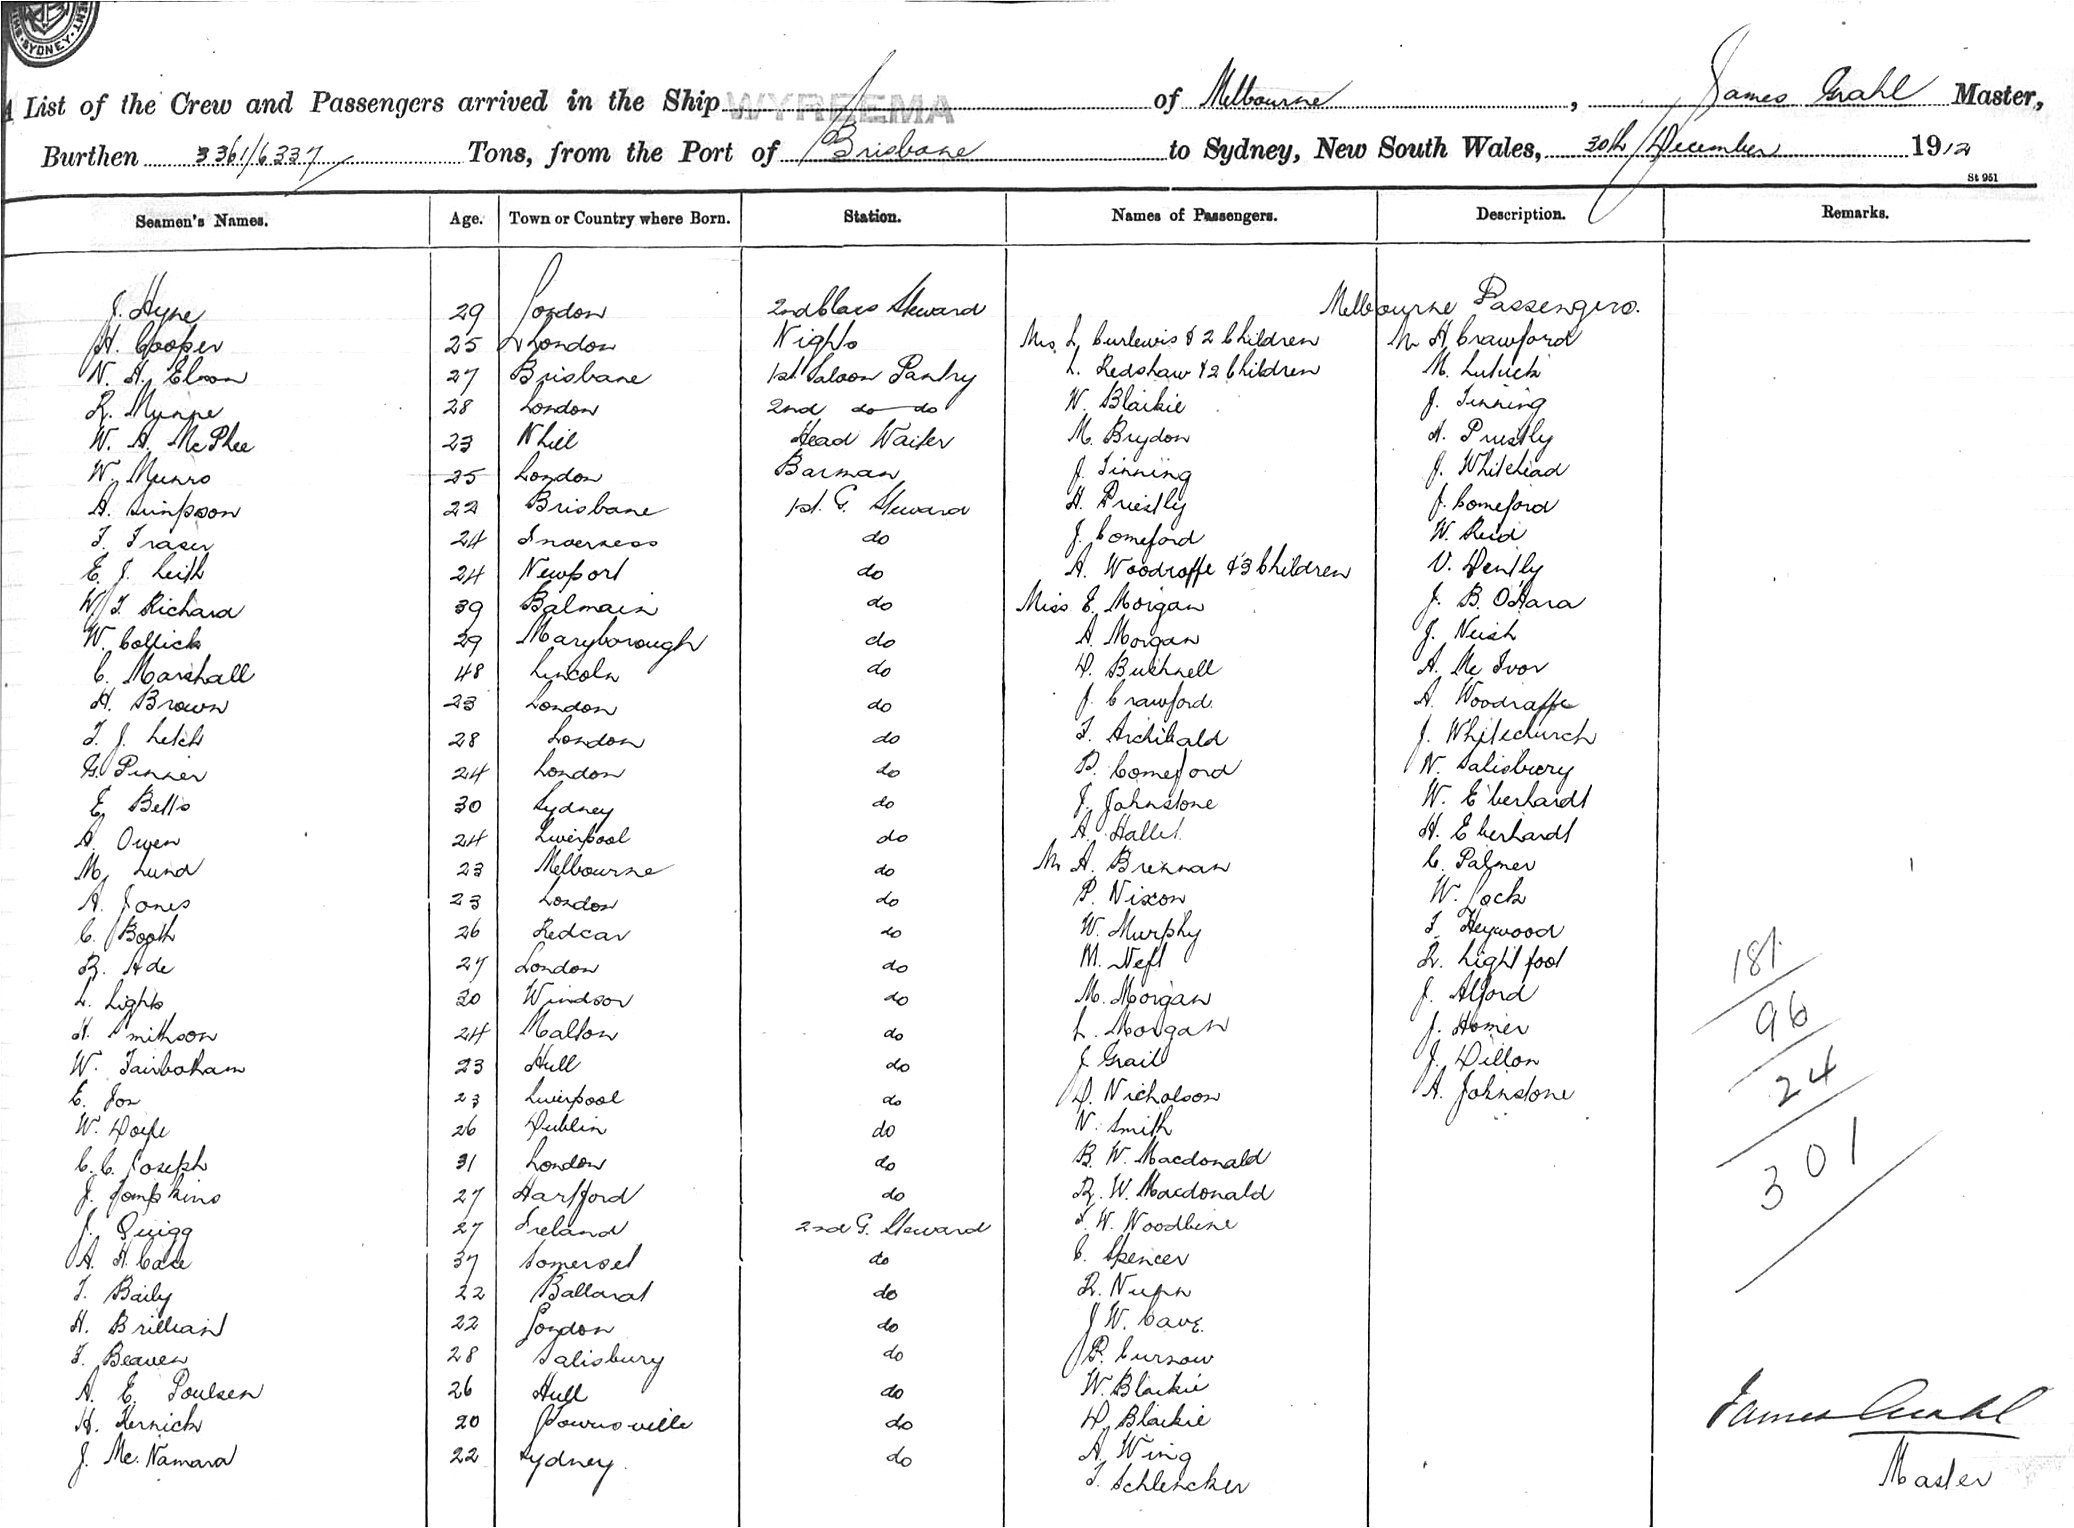 SYDNEY
A List of the Crew and Passengers arrived in the Ship WYREEMA of Melbourne, James Grahl Master,
Burthen 3361/6337 Tons, from the Port of Brisbane to Sydney, New South Wales, 30th December 1912
St 951
Seamen's Names. Age. Town or Country where Born. Station. Names of Passengers. Description. Remarks.
Melbourne Passengers.
J. Hyne 29 London 2nd Class Steward
H. Cooper 25 London Nights Mrs L Curlewis & 2 Children Mr H Crawford
N. A. Elson 27 Brisbane 1st Saloon Pantry L. Redshaw & 2 Children M. Lutick
R. Mynne 28 London 2nd do do W. Blaikie J. Tinning
W. A. McPhee 23 Nhill Head Waiter M. Brydon A. Priestly
W. Munro 25 London Barman J. Tinning J. Whitehead
A. Simpson 22 Brisbane 1st. G. Steward H. Priestly J. Comeford
T. Fraser 24 Inverness do J. Comeford W. Reid
E. J. Leith 24 Newport do A. Woodroffe & 3 Children V. Dently
W. T. Richard 39 Balmain do Miss E. Morgan J. B. O'Hara
W. Collick 29 Maryborough do A. Morgan J. Neish
C. Marshall 48 Lincoln do D. Bushnell A. Mc Ivor
H. Brown 23 London do J. Crawford. A. Woodraffe
T. J. Letch 28 London do T. Archibald J. Whitechurch
G. Pinner 24 London do B. Comeford N. Salisbury
E. Betts 30 Sydney do J. Johnstone W. Eberhardt
A. Owen 24 Liverpool do A. Hallet. H. Eberhardt
M. Lund 23 Melbourne do Mr A. Brennan C. Palmer
A. Jones 23 London do P. Nixon W. Lock
C. Booth 26 Redcar do W. Murphy T. Heywood
R. Ade 27 London do M. Neft R. Lightfoot
L. Lights 30 Windsor do M. Morgan J. Alford
H. Smithson 24 Malton do L. Morgan J. Homer
W. Fairbotham 23 Hull do J. Grail J. Dillon
E. Jon 23 Liverpool do D. Nicholson A. Johnstone
W. Doyle 26 Dublin do N. Smith
C. C. Joseph 31 London do B. W. Macdonald
J. Tompkins 27 Hartford do R. W. Macdonald
J. Quigg 27 Ireland 2nd G. Steward T. W. Woodbine
A. H. Case 37 Somerset do C. Spencer
T. Baily 22 Ballarat do R. Nunn
H. Brilliant 22 London do J W. Cave.
T. Beaven 28 Salisbury do P. Curnow
A. E. Poulsen 26 Hull do W. Blaikie
H. Kernick 20 Townsville do D. Blaikie
J. Mc. Namara 22 Sydney. do A. Wing
T. Schlencker
181
96
24
301
James Grahl
Master